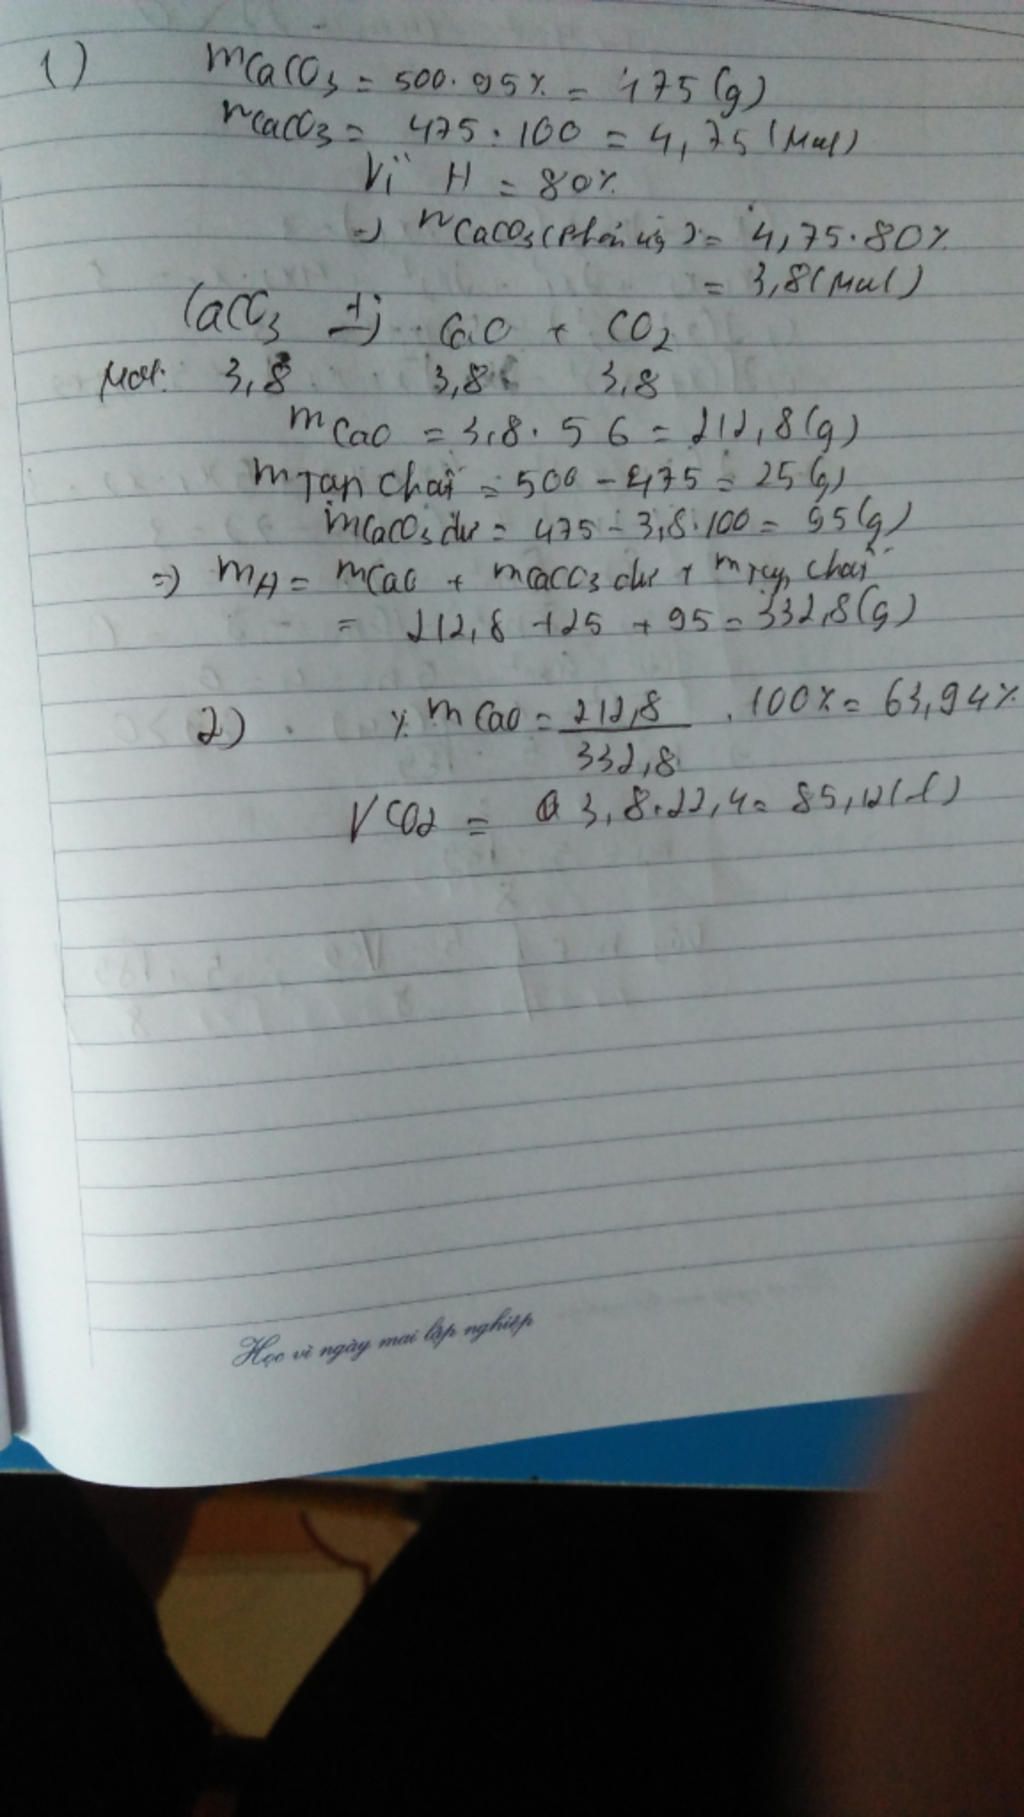 1) mCaCO3 = 500. 95% = 475 (g)
nCaCO3 = 475 : 100 = 4,75 (Mol)
Vì H = 80%
=> nCaCO3 (phản ứng) = 4,75.80%
= 3,8 (Mol)
CaCO3 -> CaO + CO2
Mol: 3,8 3,8 3,8
mCaO = 3,8. 56 = 212,8 (g)
mTạp chất = 500 - 475 = 25 (g)
mCaCO3 dư = 475 - 3,8.100 = 95 (g)
=> mA = mCaO + mCaCO3 dư + mTạp chất
= 212,8 + 25 + 95 = 332,8 (g)
2) % mCaO = 212,8 / 332,8 . 100% = 63,94%
VCO2 = 3,8.22,4 = 85,12 (l)
Học vì ngày mai lập nghiệp